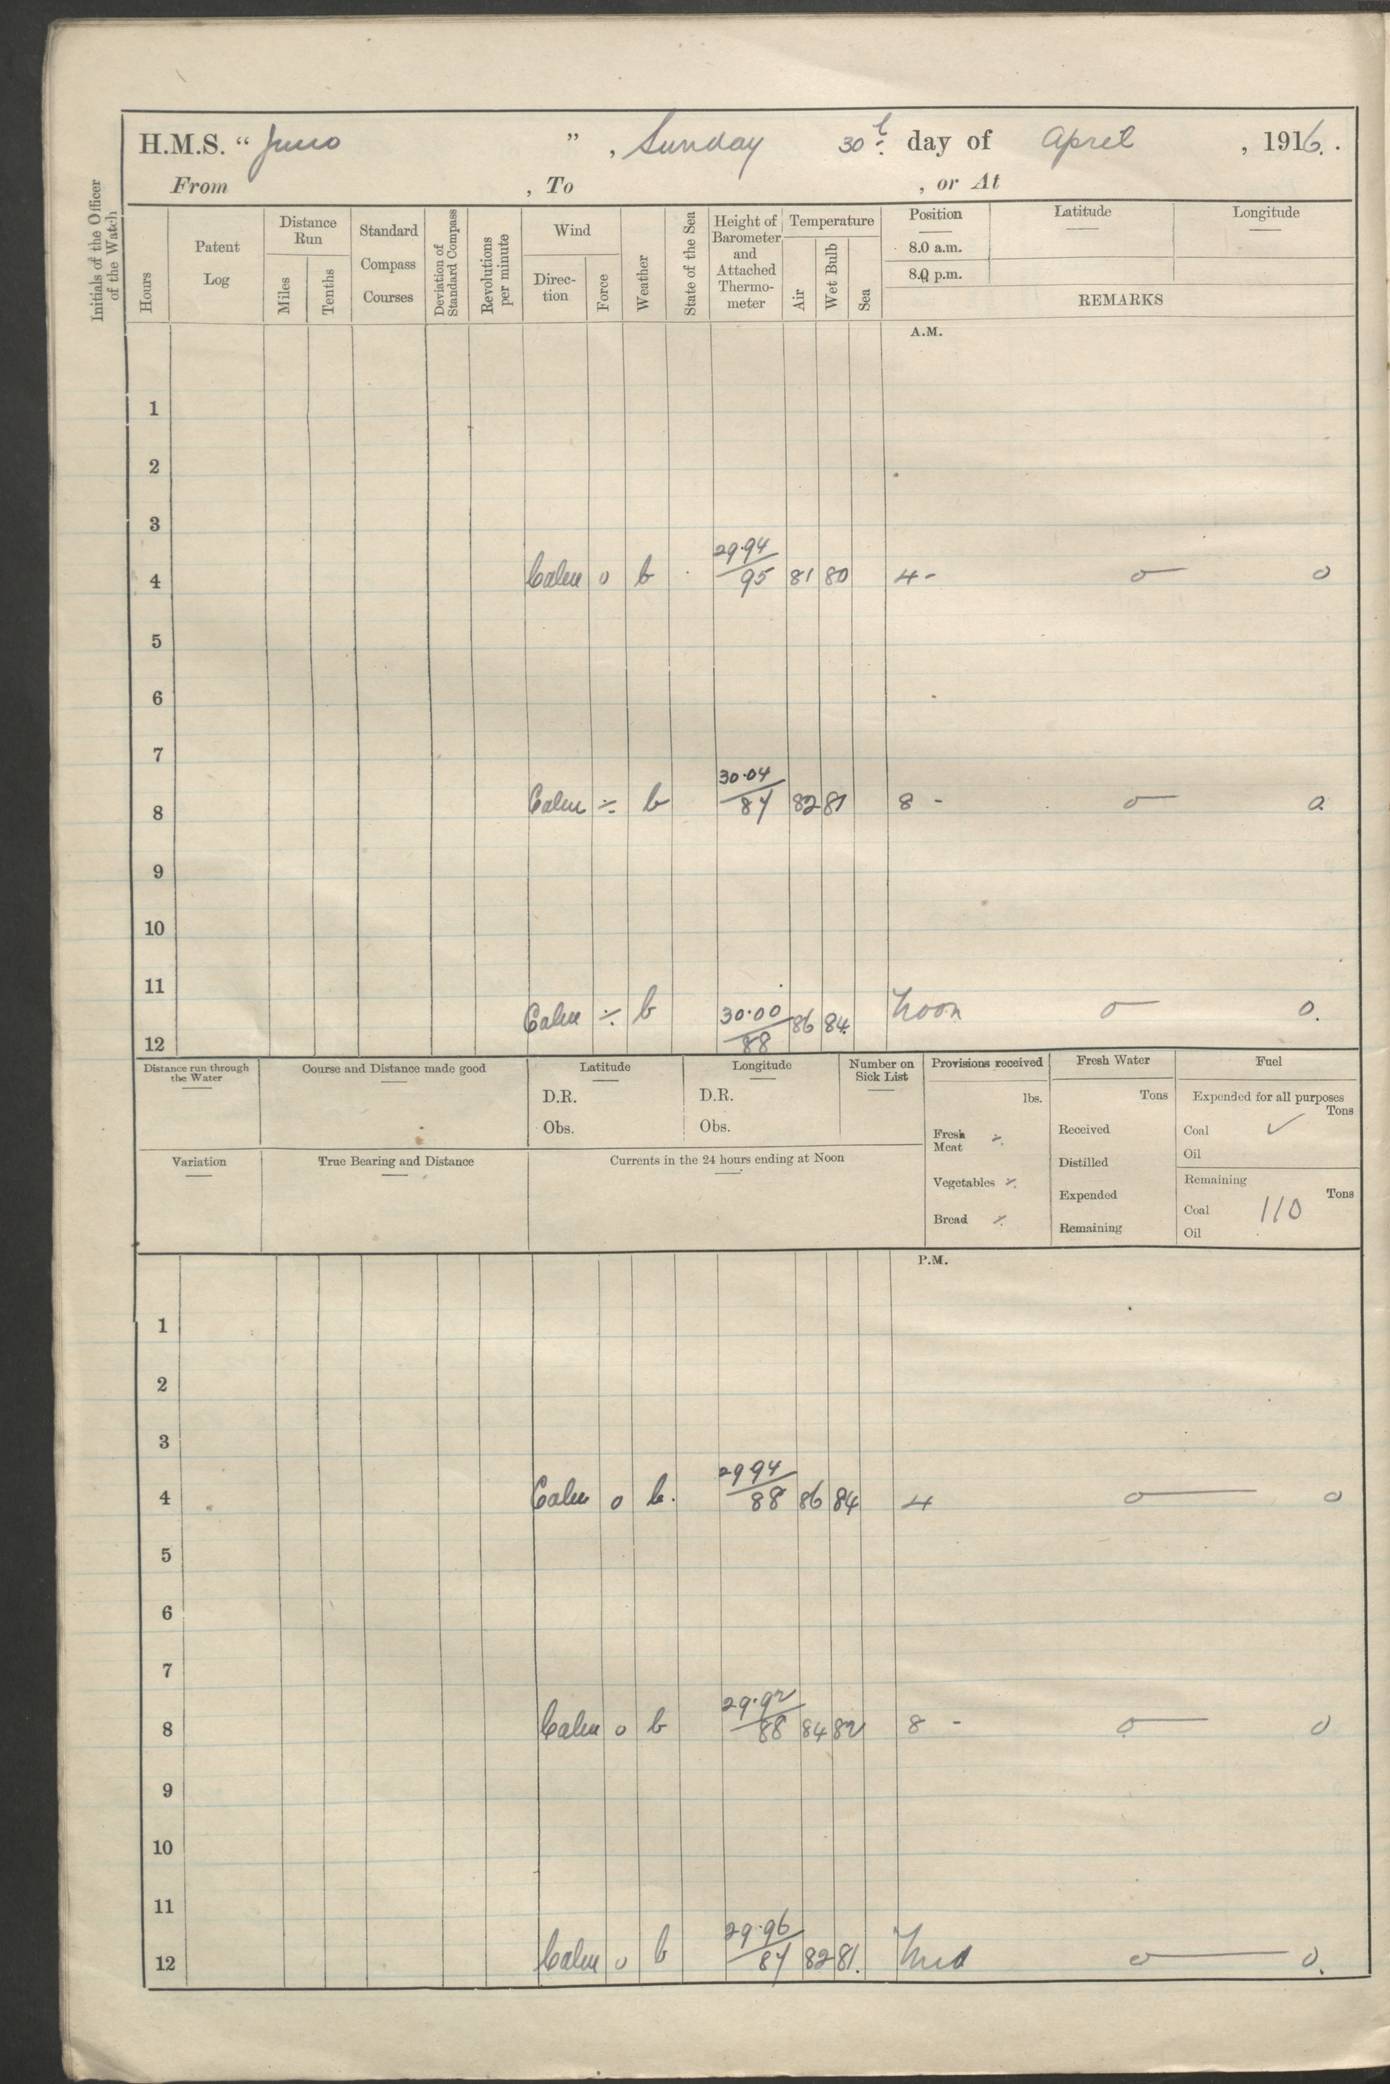 H.M.S. "Juno", Sunday 30th day of April, 1916.
From , To , or At
Initials of the Officer of the Watch
Hours
Patent Log
Distance Run
Miles
Tenths
Standard Compass Courses
Deviation of Standard Compass
Revolutions per minute
Wind
Direction
Force
Weather
State of the Sea
Height of Barometer and Attached Thermometer
Temperature
Air
Wet Bulb
Sea
Position Latitude Longitude
8.0 a.m.
8.0 p.m.
REMARKS
A.M.
1
2
3
4 Calm 0 b 29.94/95 81 80 4 - o— o
5
6
7
8 Calm ÷ b 30.04/87 82 81 8 - o— o
9
10
11
12 Calm ÷ b 30.00/88 86 84 Noon o— o.
Distance run through the Water
Course and Distance made good
Latitude
D.R.
Obs.
Longitude
D.R.
Obs.
Number on Sick List
Variation
True Bearing and Distance
Currents in the 24 hours ending at Noon
Provisions received
lbs.
Fresh Meat ÷
Vegetables ÷
Bread ÷
Fresh Water
Tons
Received
Distilled
Expended
Remaining
Fuel
Expended for all purposes
Tons
Coal ✓
Oil
Remaining
Tons
Coal 110
Oil
P.M.
1
2
3
4 Calm 0 b. 29 94/88 86 84 4 o— o
5
6
7
8 Calm 0 b 29.92/88 84 82 8 - o— o
9
10
11
12 Calm 0 b 29.96/87 82 81. Mid o— o.